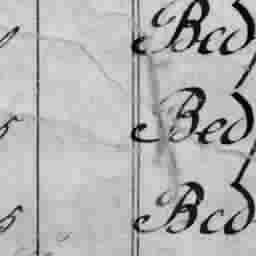 Bed
Bed
Bed